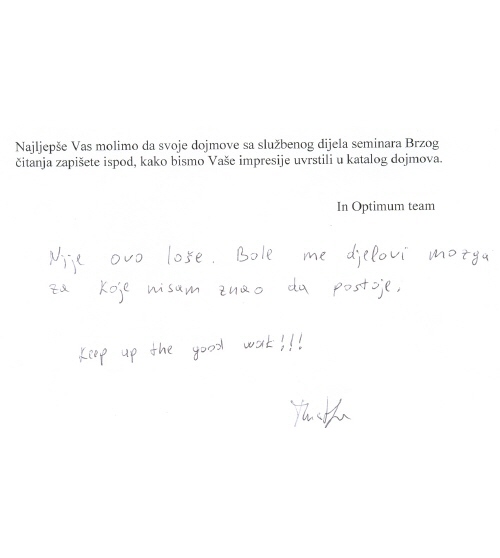 Najljepše Vas molimo da svoje dojmove sa službenog dijela seminara Brzog
čitanja zapišete ispod, kako bismo Vaše impresije uvrstili u katalog dojmova.
In Optimum team
Nije ovo loše. Bole me djelovi mozga
za koje nisam znao da postoje.
Keep up the good work!!!